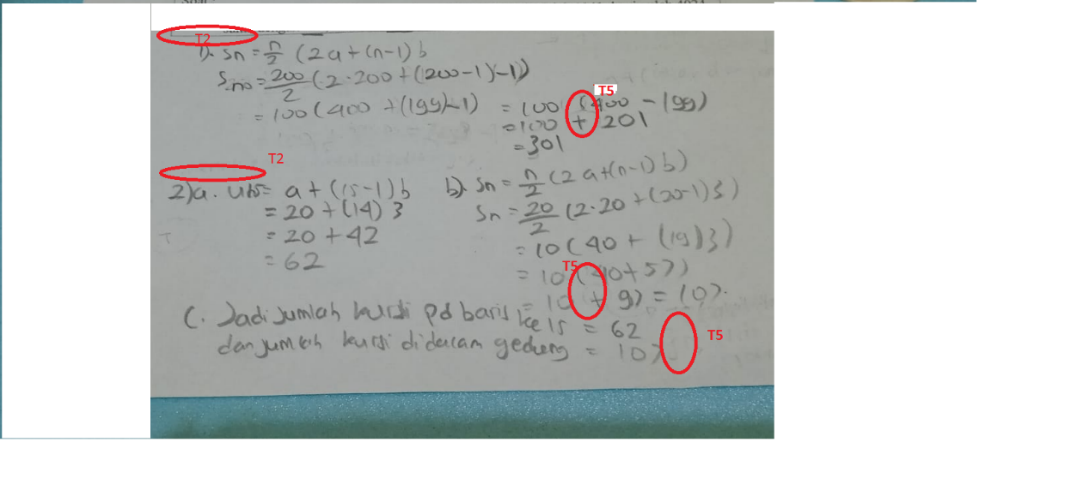 T2
1). Sn = n/2 (2a + (n-1) b
= 200/2 (2·200 + (200-1)-1))
= 100 (400 + (199)-1)
T5
= 100 (400 - 199)
= 100 + 201
= 301
T2
2)a. U15 = a + (15-1) b
= 20 + (14) 3
= 20 + 42
= 62
b). Sn = n/2 (2 a+(n-1) b)
Sn = 20/2 (2·20 + (20-1) 3)
= 10 (40 + (19) 3)
T5
= 10 (40 + 57)
= 10 + 97 = 107.
C. Jadi jumlah kursi pd baris ke 15 = 62
dan jumlah kursi didalam gedung = 107
T5